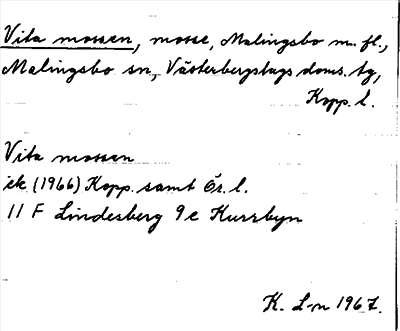 Vita mossen, mosse, Malingsbo m. fl.,
Malingsbo sn, Västerbergslags doms. tg,
Kopp. l.
Vita mossen
ek (1966) Kopp. samt Ör. l.
11 F Lindesberg 9 c Kurrbyn
K. L-n 1967.